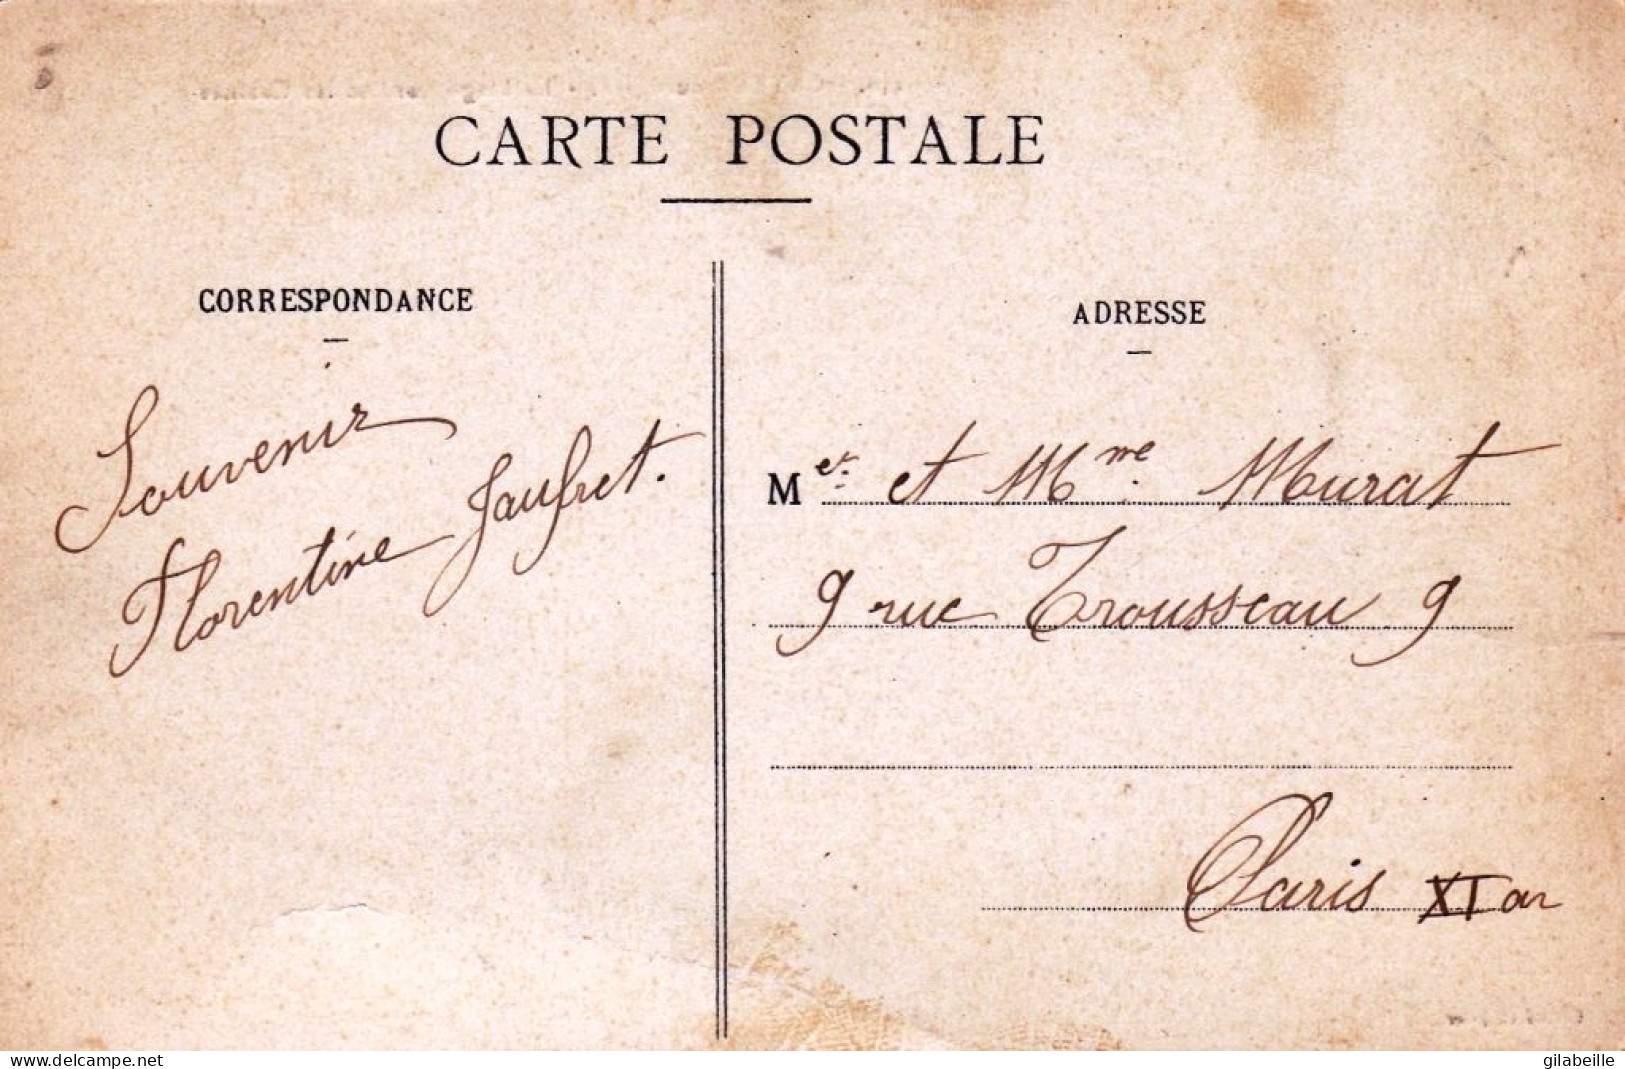 CARTE POSTALE
CORRESPONDANCE
Souvenir
Florentine Jaufret.
ADRESSE
Mer. et Mme. Murat
9 rue Trousseau 9
Paris XI ar
www.delcampe.net
gilabeille